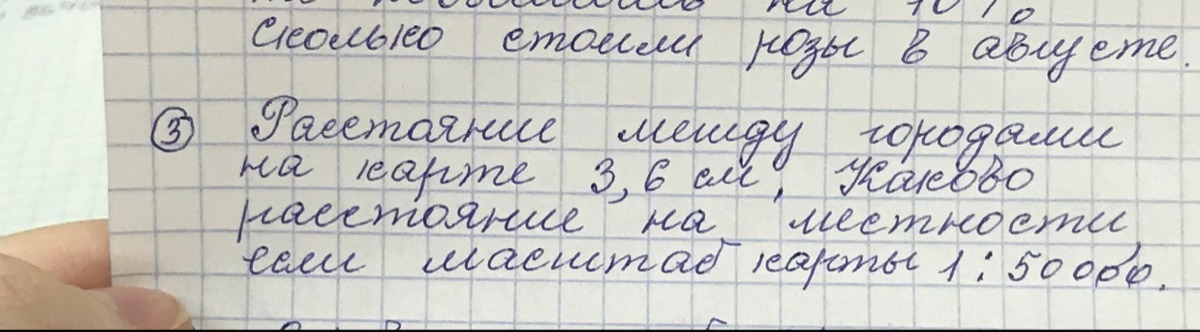 на 10%
Сколько стоили розы в августе.
③ Расстояние между городами
на карте 3,6 см. Каково
расстояние на местности,
если масштаб карты 1:50000.